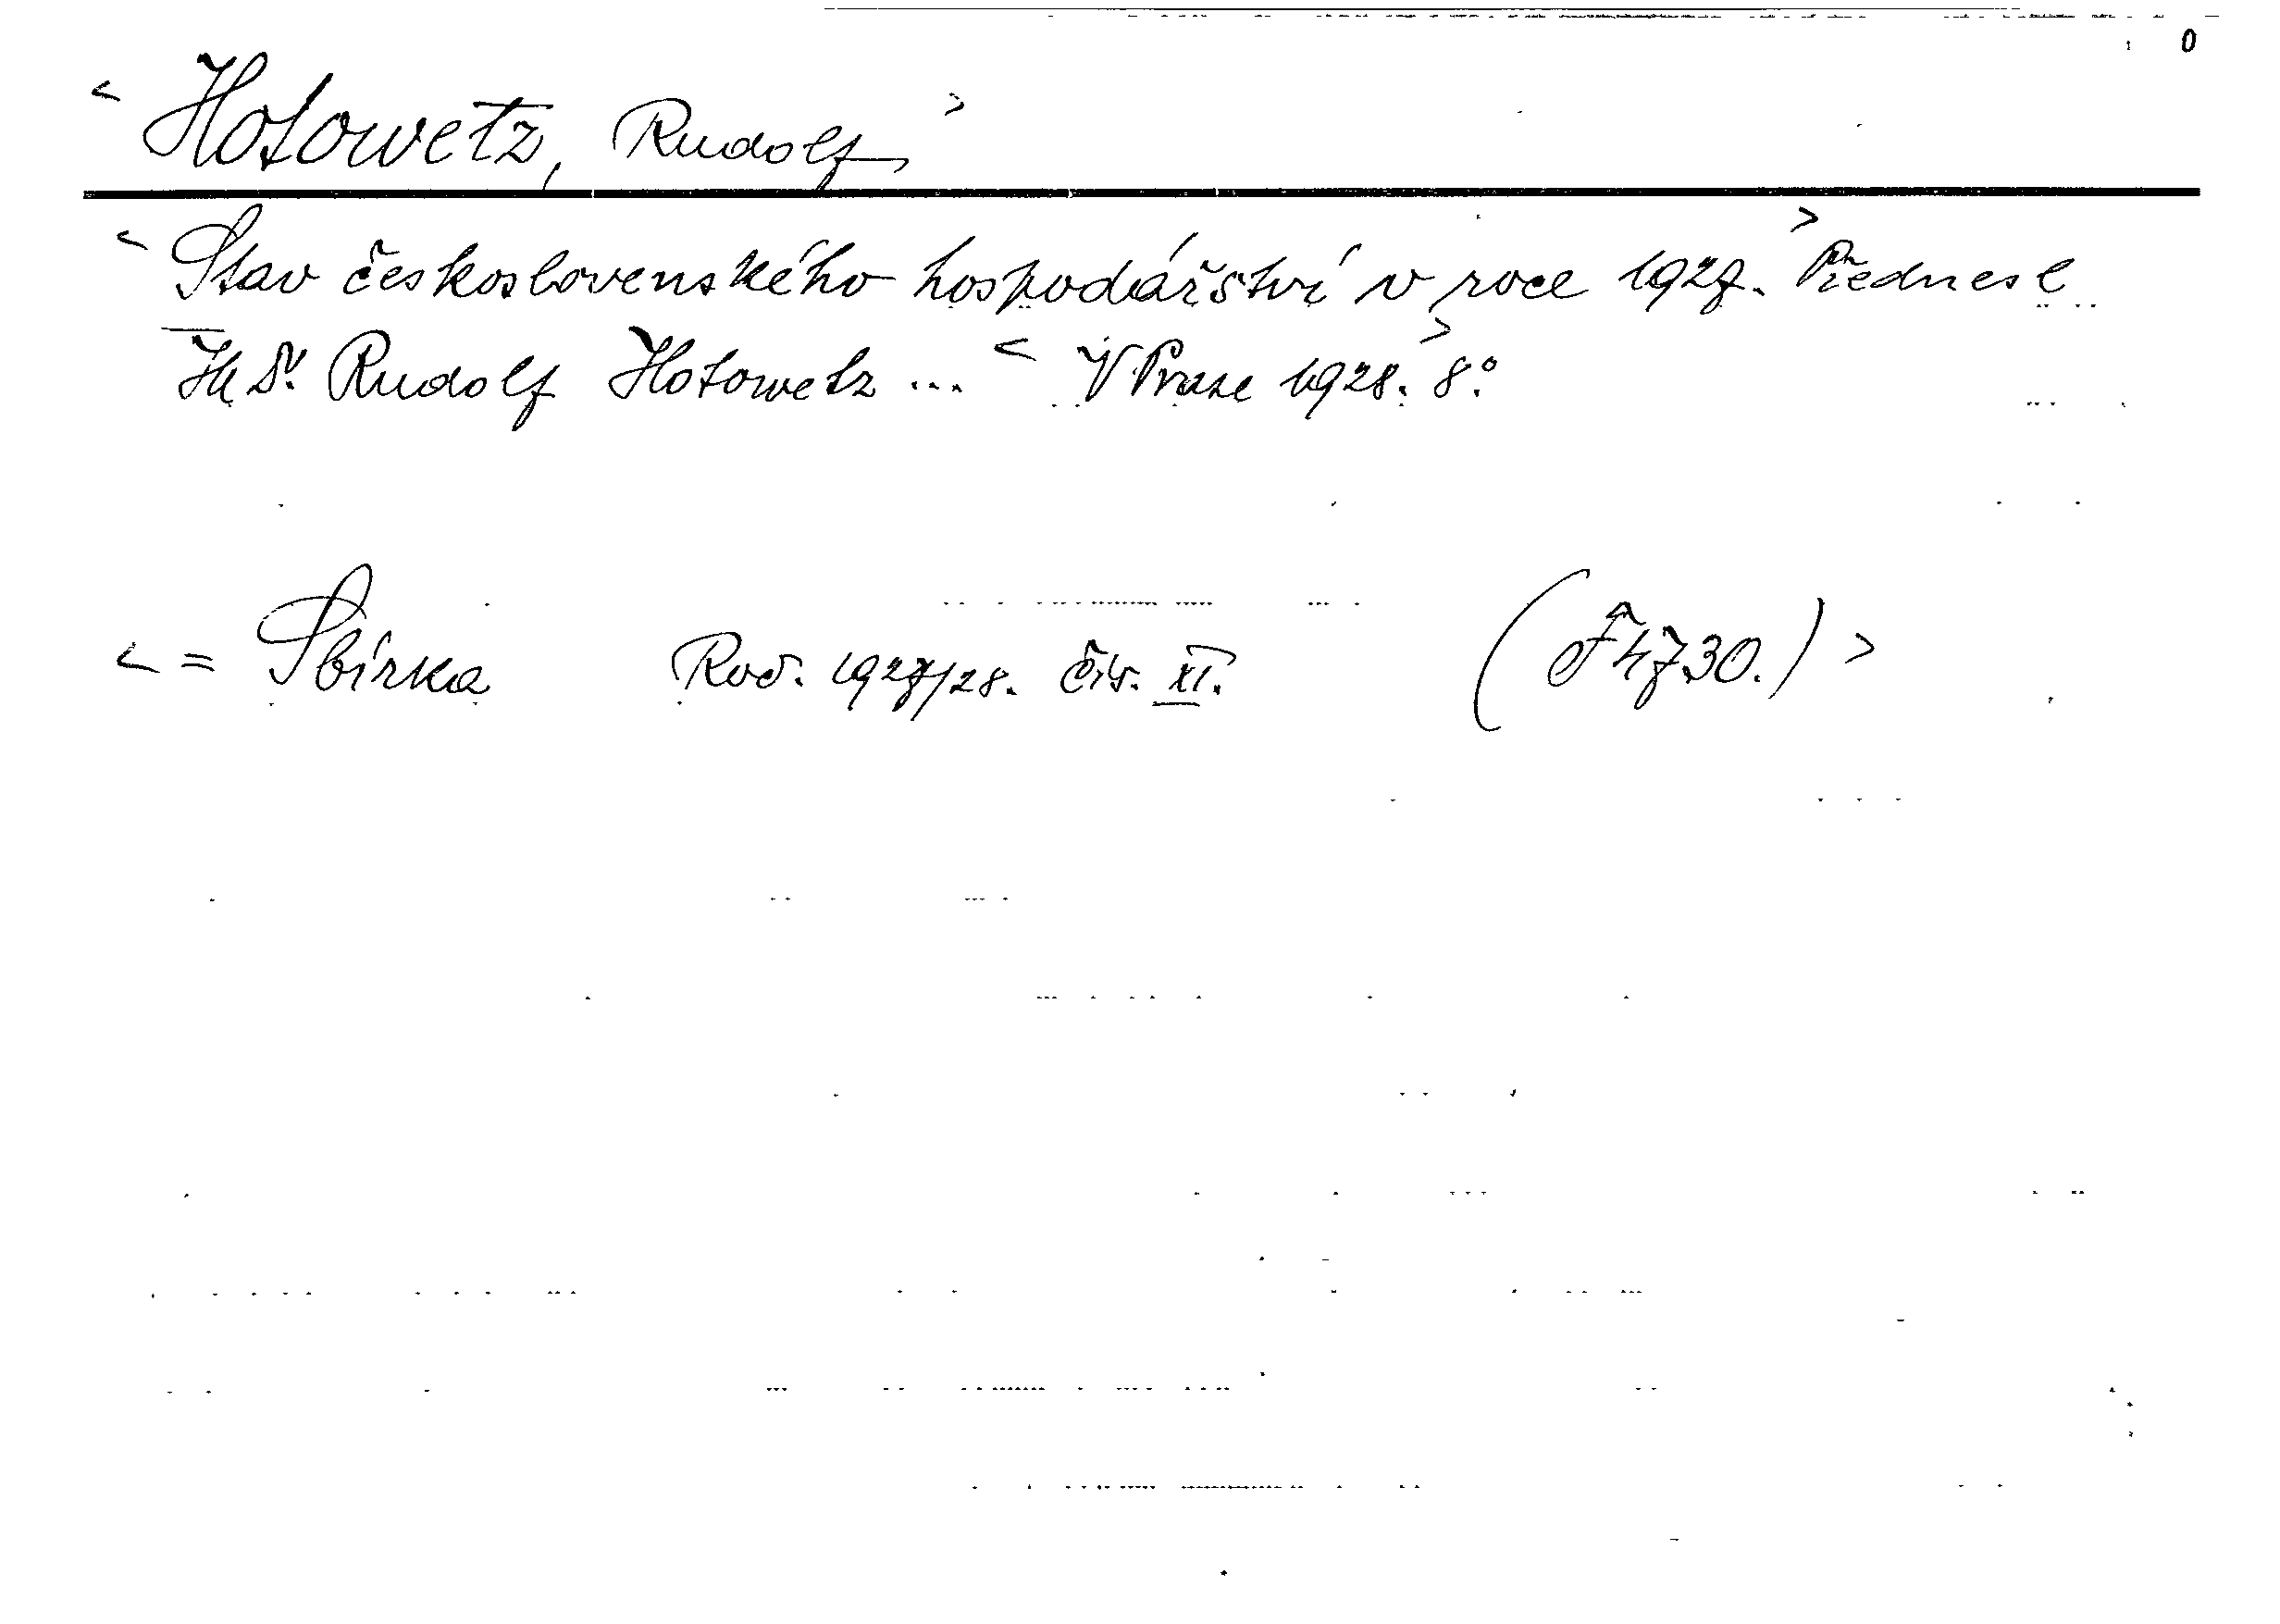 0
< Hotowetz, Rudolf >
< Stav československého hospodářství v roce 1927. > Přednesl
Dr. Rudolf Hotowetz ... < V Praze 1928. > 8°.
< = Sbírka Roč. 1927/28. Čís. XI. (F 4730.) >